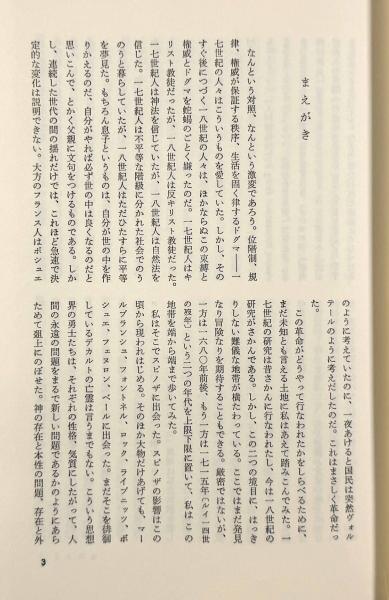 まえがき
なんという対照、なんという激変であろう。位階制、規
律、権威が保証する秩序、生活を固く律するドグマ――一
七世紀の人々はこういうものを愛していた。しかし、その
すぐ後につづく一八世紀の人々は、ほかならぬこの束縛と
権威とドグマを蛇蝎のごとく嫌ったのだ。一七世紀人はキ
リスト教徒だったが、一八世紀人は反キリスト教徒だった。
一七世紀人は神法を信じていたが、一八世紀人は自然法を
信じた。一七世紀人は不平等な階級に分かれた社会でのう
のうと暮らしていたが、一八世紀人はただひたすらに平等
を夢見た。もちろん息子というものは、自分が世の中を作
りかえるのだ、自分がやれば必ず世の中は良くなるのだと
思いこんで、とかく父親に文句をつけるものである。しか
し、連続した世代の間の揺れだけでは、これほど急速で決
定的な変化は説明できない。大方のフランス人はボシュエ
のように考えていたのに、一夜あけると国民は突然ヴォル
テールのように考えだしたのだ。これはまさしく革命だっ
た。
この革命がどうやって行なわれたかをしらべるために、
まだ未知とも言える土地に私はあえて踏みこんでみた。一
七世紀の研究は昔さかんに行なわれたし、今は一八世紀の
研究がさかんである。しかし、この二つの境目に、はっき
りしない難儀な地帯が横たわっている。ここではまだ発見
なり冒険なりを期待することもできる。厳密ではないが、
一方は一六八〇年前後、もう一方は一七一五年(ルイ一四世
の歿年)という二つの年代を上限下限に置いて、私はこの
地帯を端から端まで歩いてみた。
私はそこでスピノザに出会った。スピノザの影響はこの
頃から現われはじめる。そのほか大物だけあげても、マー
ルブランシュ、フォントネル、ロック、ライプニッツ、ボ
シュエ、フェヌロン、ベールに出会った。まだそこを徘徊
しているデカルトの亡霊は言うまでもない。こういう思想
界の勇士たちは、それぞれの性格、気質にしたがって、人
間の永遠の問題をまるで新しい問題であるかのようにあら
ためて俎上にのぼせた。神の存在と本性の問題、存在と外
3